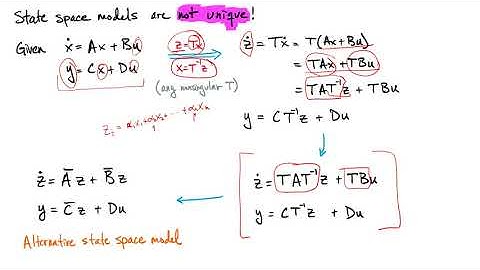 State space models are not unique!
Given ẋ = Ax + Bu
y = Cx + Du
z = Tx
x = T⁻¹z
(any nonsingular T)
ż = Tẋ = T(Ax + Bu)
= TAx + TBu
= TAT⁻¹z + TBu
y = CT⁻¹z + Du
z₂ = α₁x₁ + α₂x₂ + ··· + αₙxₙ
ż = TAT⁻¹z + TBu
y = CT⁻¹z + Du
ż = A̅z + B̅z
y = C̅z + Du
Alternative state space model